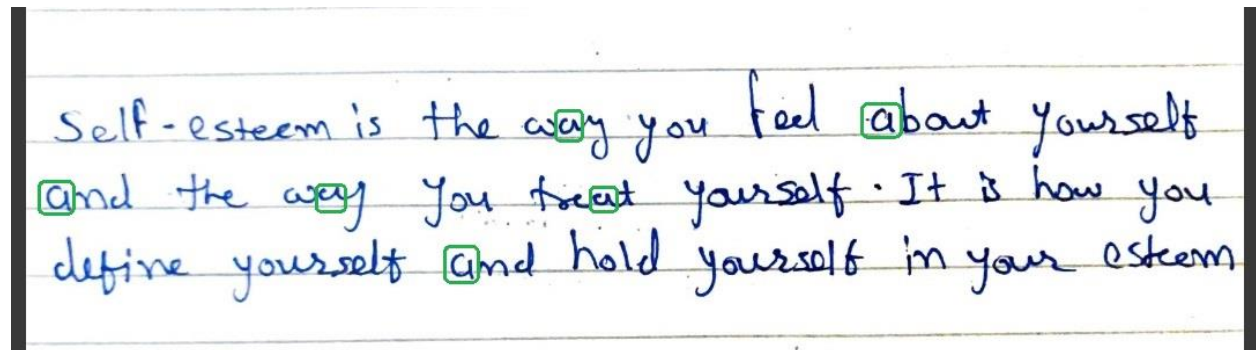 Self-esteem is the way you feel about yourself
and the way you treat yourself. It is how you
define yourself and hold yourself in your esteem